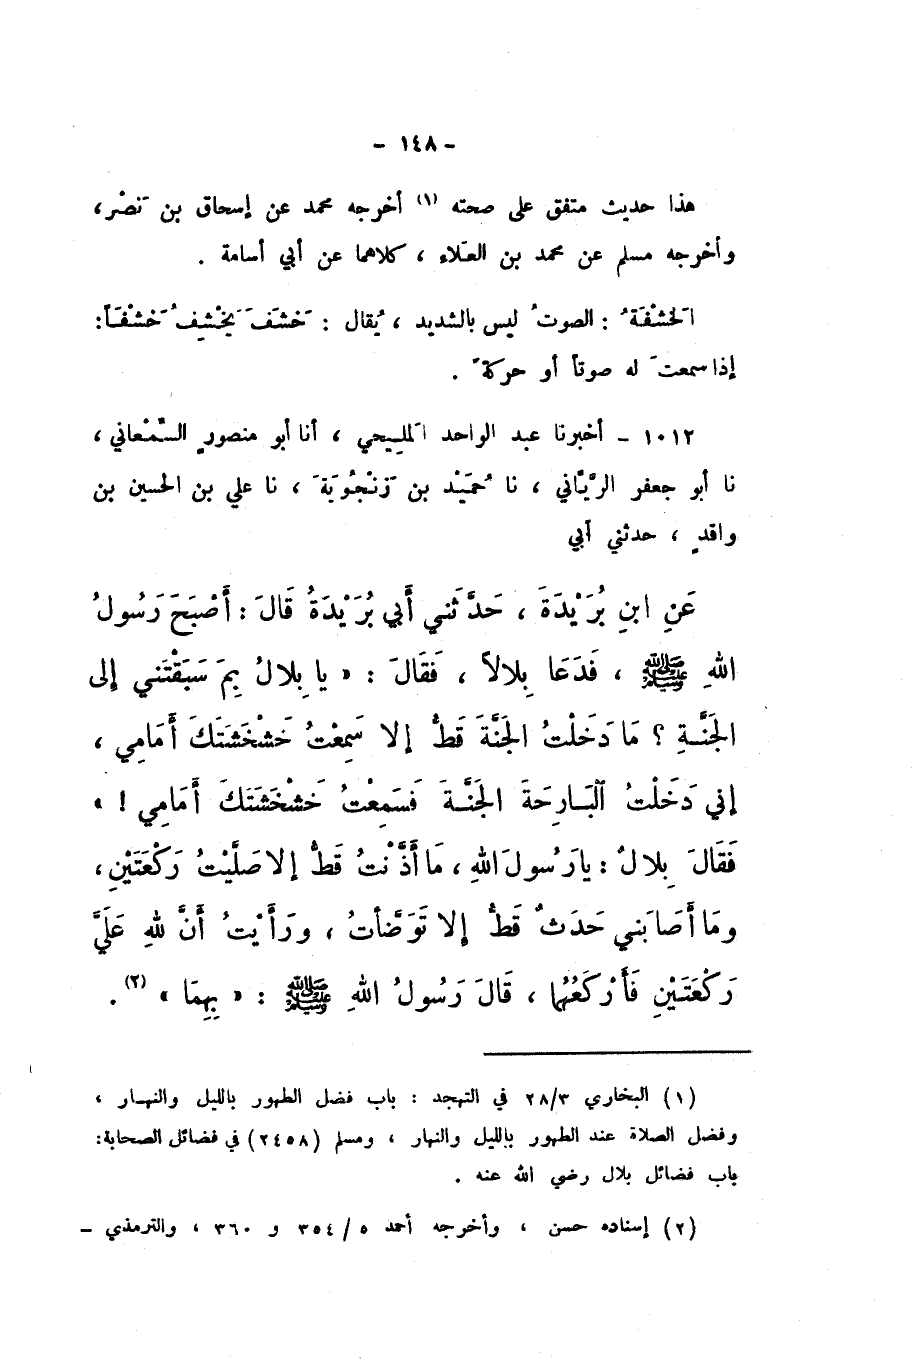 - ١٤٨ -
هذا حديث متفق على صحته (١) أخرجه محمد عن إسحاق بن نَصْر،
وأخرجه مسلم عن محمد بن العَلاء ، كلاهما عن أبي أسامة .
الخَشْفَةُ : الصوتُ ليس بالشديد ، يُقال : خَشَفَ يَخْشِفُ خَشْفَاً :
إذا سمعتَ له صوتاً أو حركةً .
١٠١٢ - أخبرنا عبد الواحد المَلِيحي ، أنا أبو منصورٍ السَّمْعاني ،
نا أبو جعفر الرَّيَّاني ، نا حُمَيْد بن زَنْجُويَةَ ، نا علي بن الحسين بن
واقدٍ ، حدثني أبي
عَنِ ابنِ بُرَيْدَةَ ، حَدَّثَني أَبي بُرَيْدَةُ قَالَ : أَصْبَحَ رَسُولُ
اللهِ ﷺ ، فَدَعَا بِلالاً ، فَقَالَ : « يا بِلالُ بِمَ سَبَقْتَني إلى
الجَنَّةِ ؟ مَا دَخَلْتُ الجَنَّةَ قَطُّ إلا سَمِعْتُ خَشْخَشَتَكَ أَمَامِي ،
إني دَخَلْتُ البَارِحَةَ الجَنَّةَ فَسَمِعْتُ خَشْخَشَتَكَ أَمَامِي ! »
فَقَالَ بِلالٌ : يا رَسُولَ اللهِ ، مَا أَذَّنْتُ قَطُّ إلا صَلَّيْتُ رَكْعَتَيْنِ ،
ومَا أَصَابَني حَدَثٌ قَطُّ إلا تَوَضَّأتُ ، ورَأَيْتُ أَنَّ للهِ عَلَيَّ
رَكْعَتَيْنِ فَأَرْكَعُهُما ، قَالَ رَسُولُ اللهِ ﷺ : « بِهِمَا » (٢) .
(١) البخاري ٢٨/٣ في التهجد : باب فضل الطهور بالليل والنهار ،
وفضل الصلاة عند الطهور بالليل والنهار ، ومسلم (٢٤٥٨) في فضائل الصحابة :
باب فضائل بلال رضي الله عنه .
(٢) إسناده حسن ، وأخرجه أحمد ٥ / ٣٥٤ و ٣٦٠ ، والترمذي -